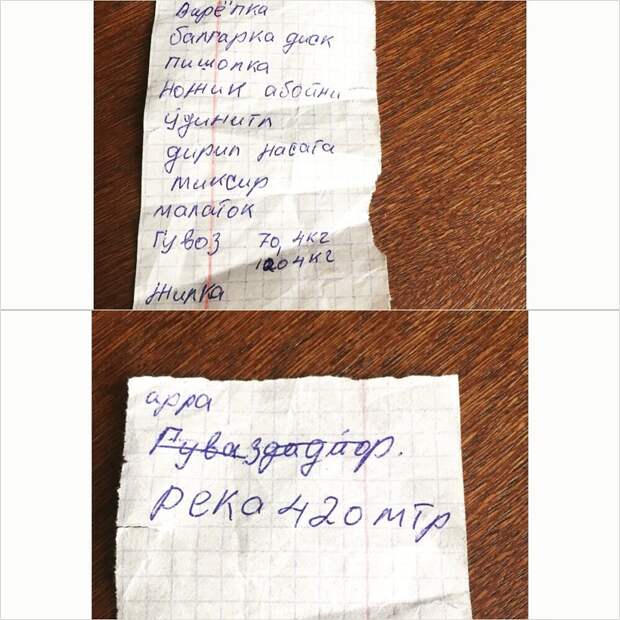 Варёпка
балгарка диск
пишопка
ножик абойни
удинитл
дирил насата
миксир
малаток
Гувоз 70, 4кг
120 4кг
жирка
арра
Гуваздадйор.
река 420 мтр